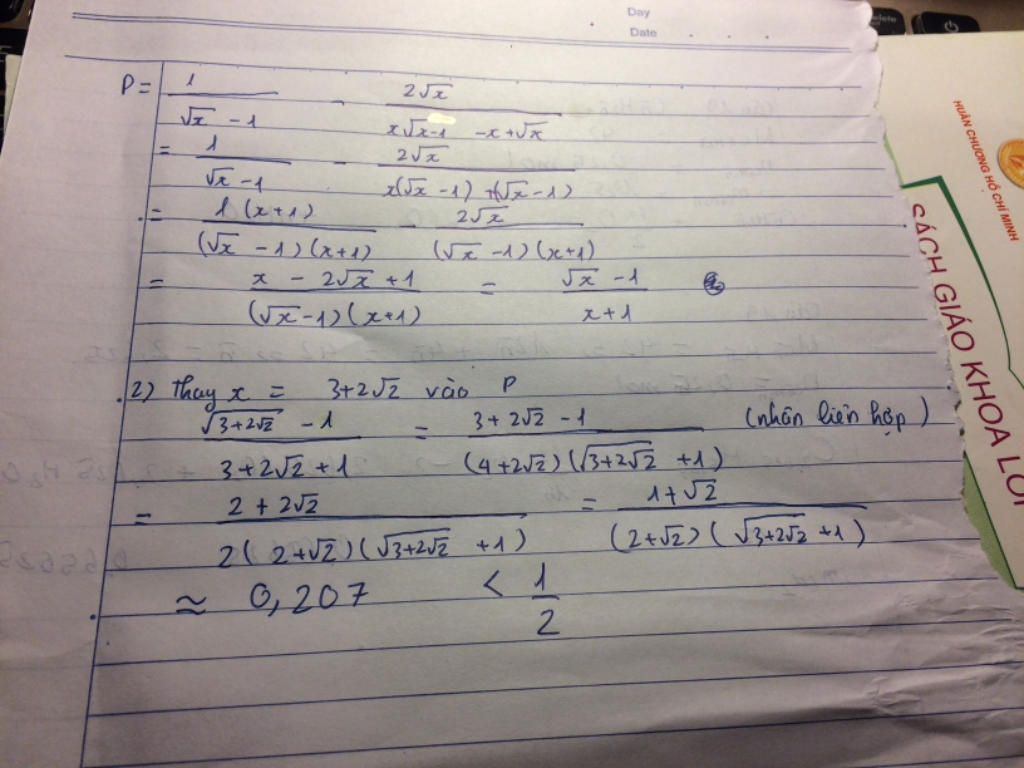 Day
Date
P = 1/(√x - 1) - 2√x/(x√x-1 -x+√x)
= 1/(√x - 1) - 2√x/(x(√x - 1) + (√x - 1))
= 1(x+1)/((√x - 1)(x+1)) - 2√x/((√x - 1)(x+1))
= (x - 2√x + 1)/((√x - 1)(x+1)) = (√x - 1)/(x+1)
2) Thay x = 3+2√2 vào P
(√(3+2√2) - 1)/(3+2√2+1) = (3+2√2 - 1)/((4+2√2)(√(3+2√2) + 1)) (nhân liên hợp)
= (2+2√2)/(2(2+√2)(√(3+2√2) + 1)) = (1+√2)/((2+√2)(√(3+2√2) + 1))
≈ 0,207 < 1/2
HUÂN CHƯƠNG HỒ CHÍ MINH
SÁCH GIÁO KHOA LỚI